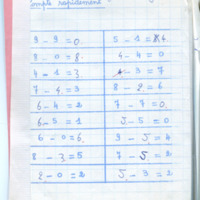 Compte rapidement
9 - 9 = 0 5 - 1 = 4
8 - 0 = 8 4 - 4 = 0
4 - 1 = 3 - 3 = 7
7 - 4 = 3 8 - 2 = 6
6 - 4 = 2 7 - 7 = 0
6 - 5 = 1 5 - 5 = 0
6 - 0 = 6 9 - 5 = 4
8 - 3 = 5 7 - 5 = 2
2 - 0 = 2 5 - 3 = 2